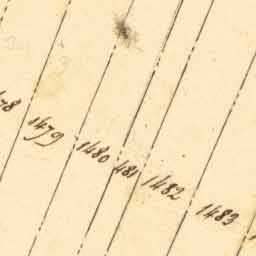 78
1479
1480
481
1482
1483